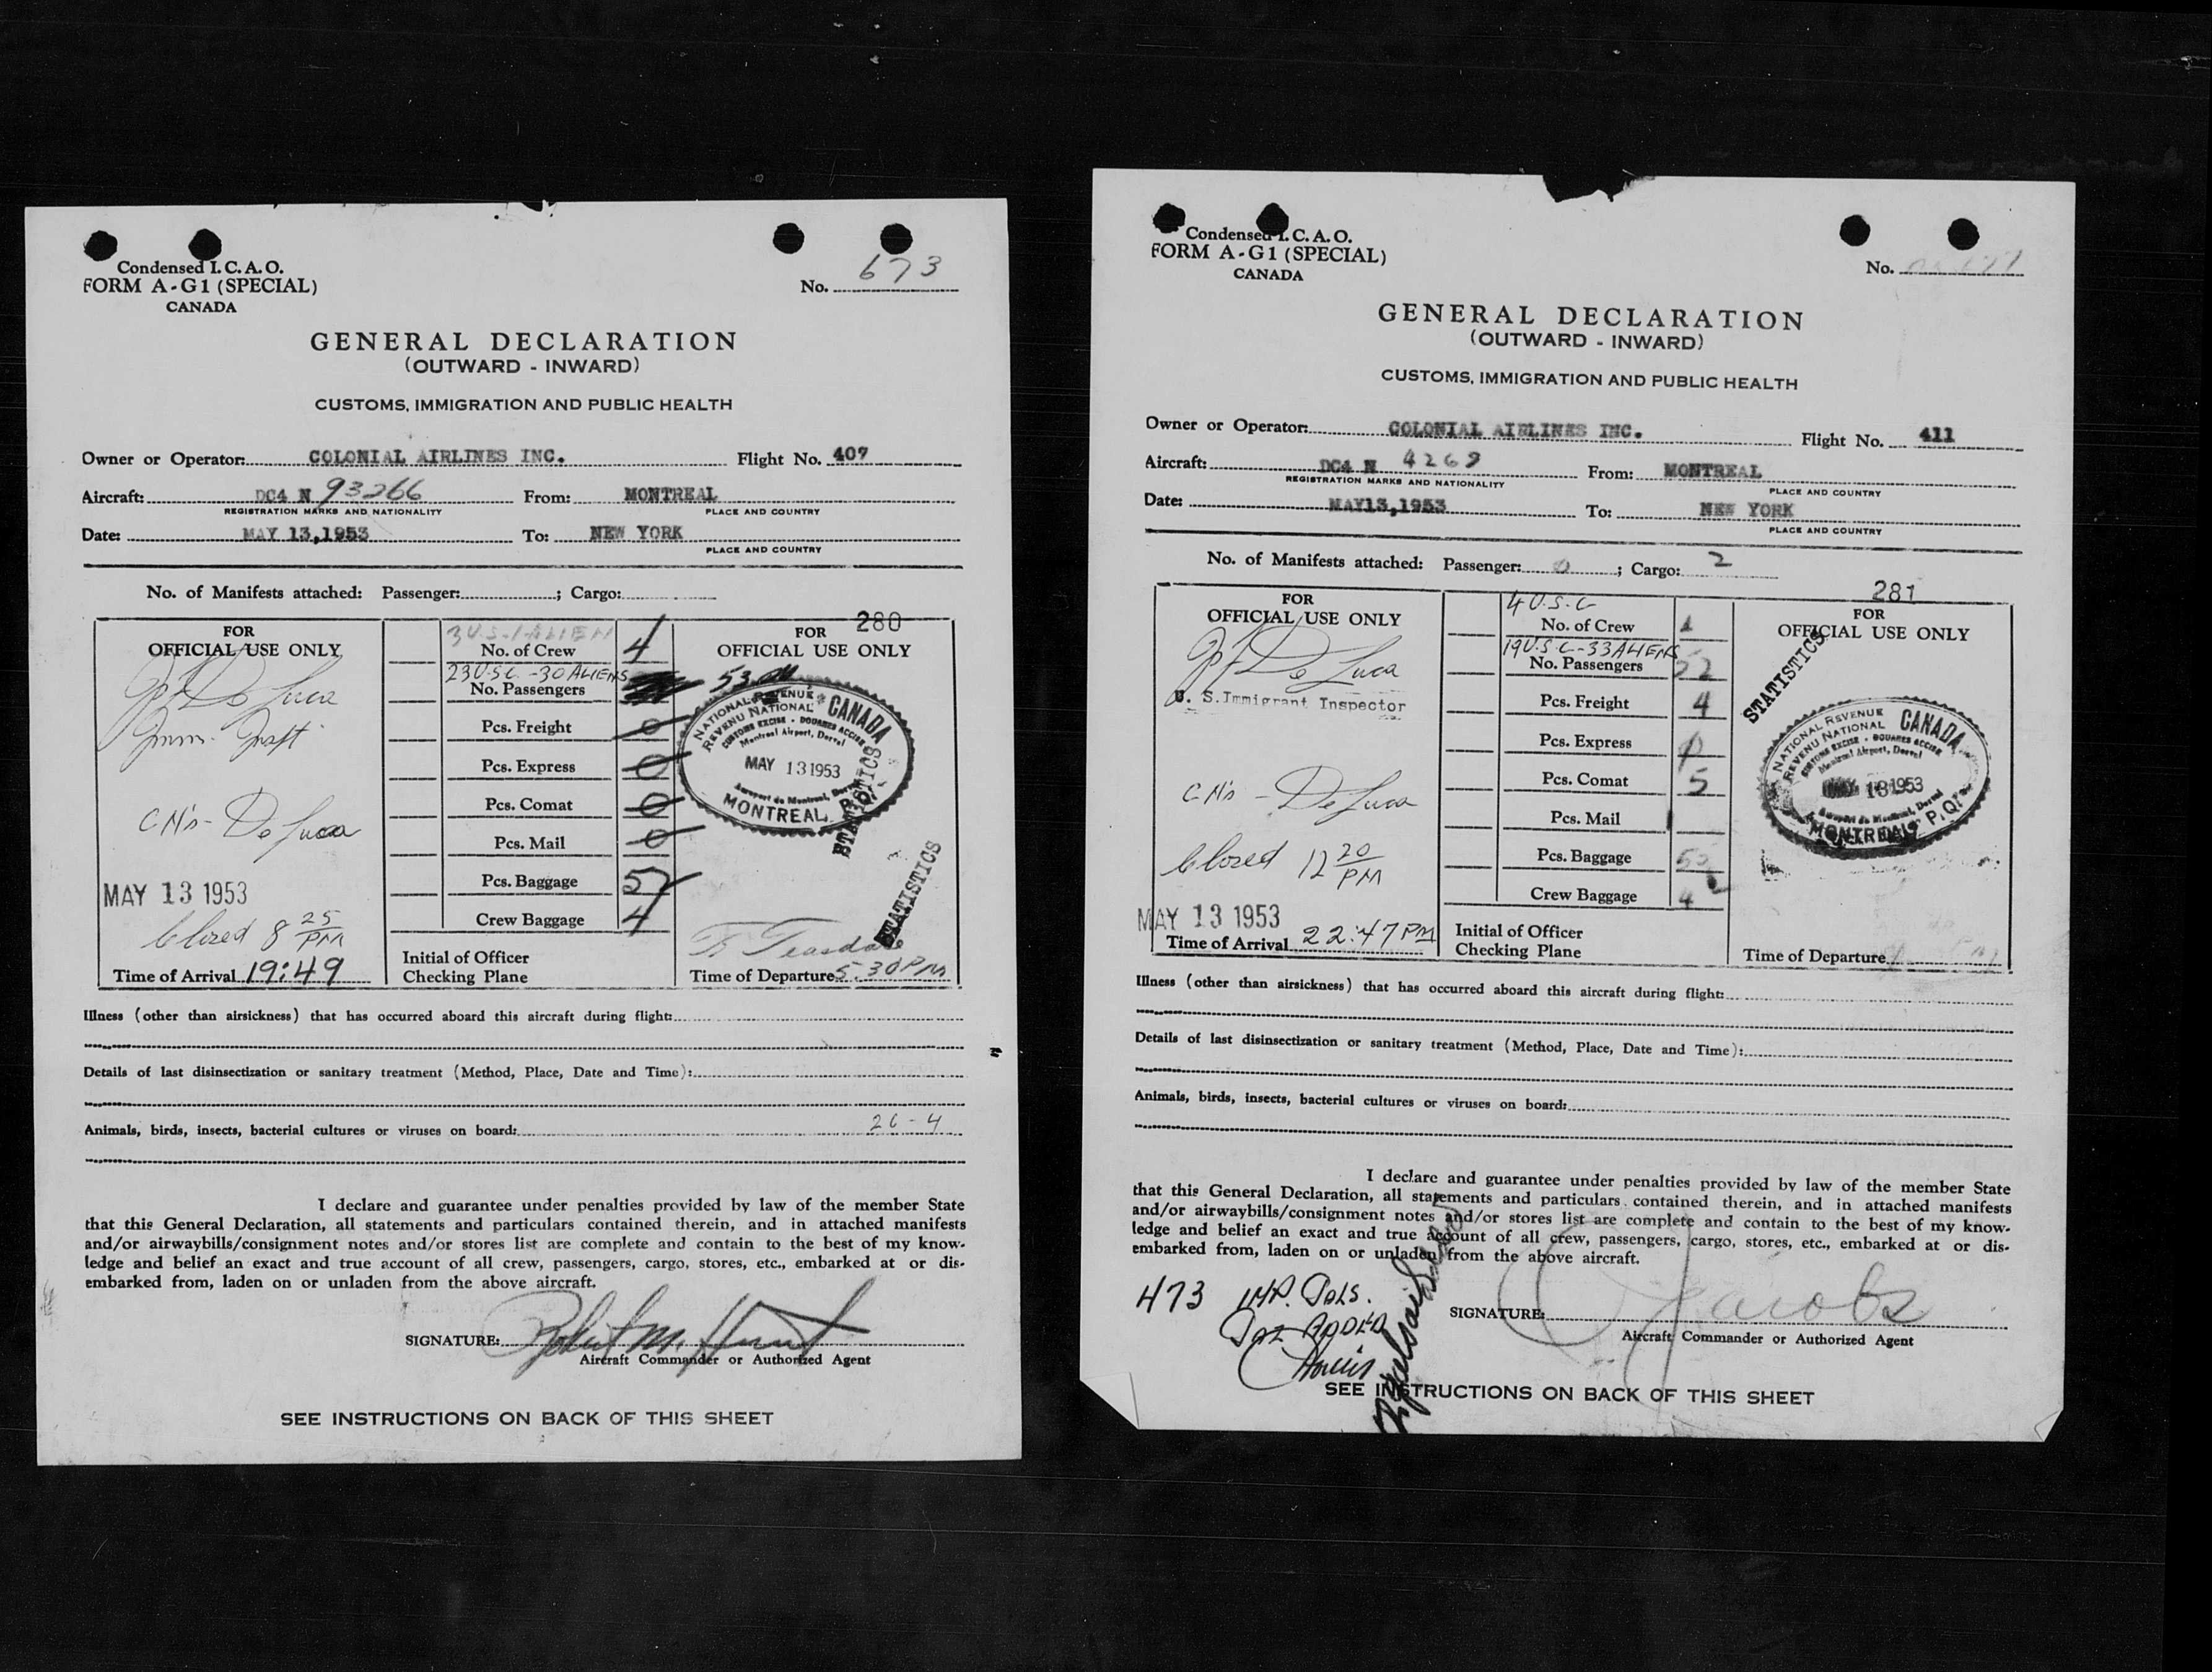 Condensed I. C. A. O.
FORM A-G1 (SPECIAL)
CANADA
No. 673
GENERAL DECLARATION
(OUTWARD - INWARD)
CUSTOMS, IMMIGRATION AND PUBLIC HEALTH
Owner or Operator: COLONIAL AIRLINES INC. Flight No. 407
Aircraft: DC4 N 93266 From: MONTREAL
REGISTRATION MARKS AND NATIONALITY PLACE AND COUNTRY
Date: MAY 13,1953 To: NEW YORK
PLACE AND COUNTRY
No. of Manifests attached: Passenger: ; Cargo:
280
FOR
OFFICIAL USE ONLY
De Luca
CN's - De Luca
MAY 13 1953
Closed 8 25 PM
Time of Arrival 19:49
3 U.S. 1 ALIEN
No. of Crew 4
23 U.S.C. - 30 ALIENS
No. Passengers 53
Pcs. Freight 0
Pcs. Express 0
Pcs. Comat 0
Pcs. Mail 0
Pcs. Baggage 57
Crew Baggage 4
Initial of Officer
Checking Plane
FOR
OFFICIAL USE ONLY
NATIONAL REVENUE
REVENU NATIONAL
CANADA
CUSTOMS EXCISE - DOUANES ACCISE
Montreal Airport, Dorval
MAY 13 1953
Aeroport de Montreal, Dorval
MONTREAL, P.Q.
STATISTICS
STATISTICS
F. Teasdale
Time of Departure 5:30 PM
Illness (other than airsickness) that has occurred aboard this aircraft during flight:
Details of last disinsectization or sanitary treatment (Method, Place, Date and Time):
Animals, birds, insects, bacterial cultures or viruses on board: 26-4
I declare and guarantee under penalties provided by law of the member State
that this General Declaration, all statements and particulars contained therein, and in attached manifests
and/or airwaybills/consignment notes and/or stores list are complete and contain to the best of my know-
ledge and belief an exact and true account of all crew, passengers, cargo, stores, etc., embarked at or dis-
embarked from, laden on or unladen from the above aircraft.
SIGNATURE: Robert M.
Aircraft Commander or Authorized Agent
SEE INSTRUCTIONS ON BACK OF THIS SHEET
Condensed I. C. A. O.
FORM A-G1 (SPECIAL)
CANADA
No.
GENERAL DECLARATION
(OUTWARD - INWARD)
CUSTOMS, IMMIGRATION AND PUBLIC HEALTH
Owner or Operator: COLONIAL AIRLINES INC. Flight No. 411
Aircraft: DC4 N 4269 From: MONTREAL
REGISTRATION MARKS AND NATIONALITY PLACE AND COUNTRY
Date: MAY13,1953 To: NEW YORK
PLACE AND COUNTRY
No. of Manifests attached: Passenger: 0 ; Cargo: 2
281
FOR
OFFICIAL USE ONLY
De Luca
U. S. Immigrant Inspector
CN's - De Luca
Closed 12 20 PM
MAY 13 1953
Time of Arrival 22:47 PM
4 U.S.C
No. of Crew
19 U.S.C - 33 ALIENS
No. Passengers 52
Pcs. Freight 4
Pcs. Express
Pcs. Comat 5
Pcs. Mail
Pcs. Baggage
Crew Baggage 4
Initial of Officer
Checking Plane
FOR
OFFICIAL USE ONLY
STATISTICS
NATIONAL REVENUE
REVENU NATIONAL
CANADA
CUSTOMS EXCISE - DOUANES ACCISE
Montreal Airport, Dorval
MAY 13 1953
Aeroport de Montreal, Dorval
MONTREAL, P.Q.
Time of Departure
Illness (other than airsickness) that has occurred aboard this aircraft during flight:
Details of last disinsectization or sanitary treatment (Method, Place, Date and Time):
Animals, birds, insects, bacterial cultures or viruses on board:
I declare and guarantee under penalties provided by law of the member State
that this General Declaration, all statements and particulars contained therein, and in attached manifests
and/or airwaybills/consignment notes and/or stores list are complete and contain to the best of my know-
ledge and belief an exact and true account of all crew, passengers, cargo, stores, etc., embarked at or dis-
embarked from, laden on or unladen from the above aircraft.
473
SIGNATURE: Jacobs
Aircraft Commander or Authorized Agent
SEE INSTRUCTIONS ON BACK OF THIS SHEET